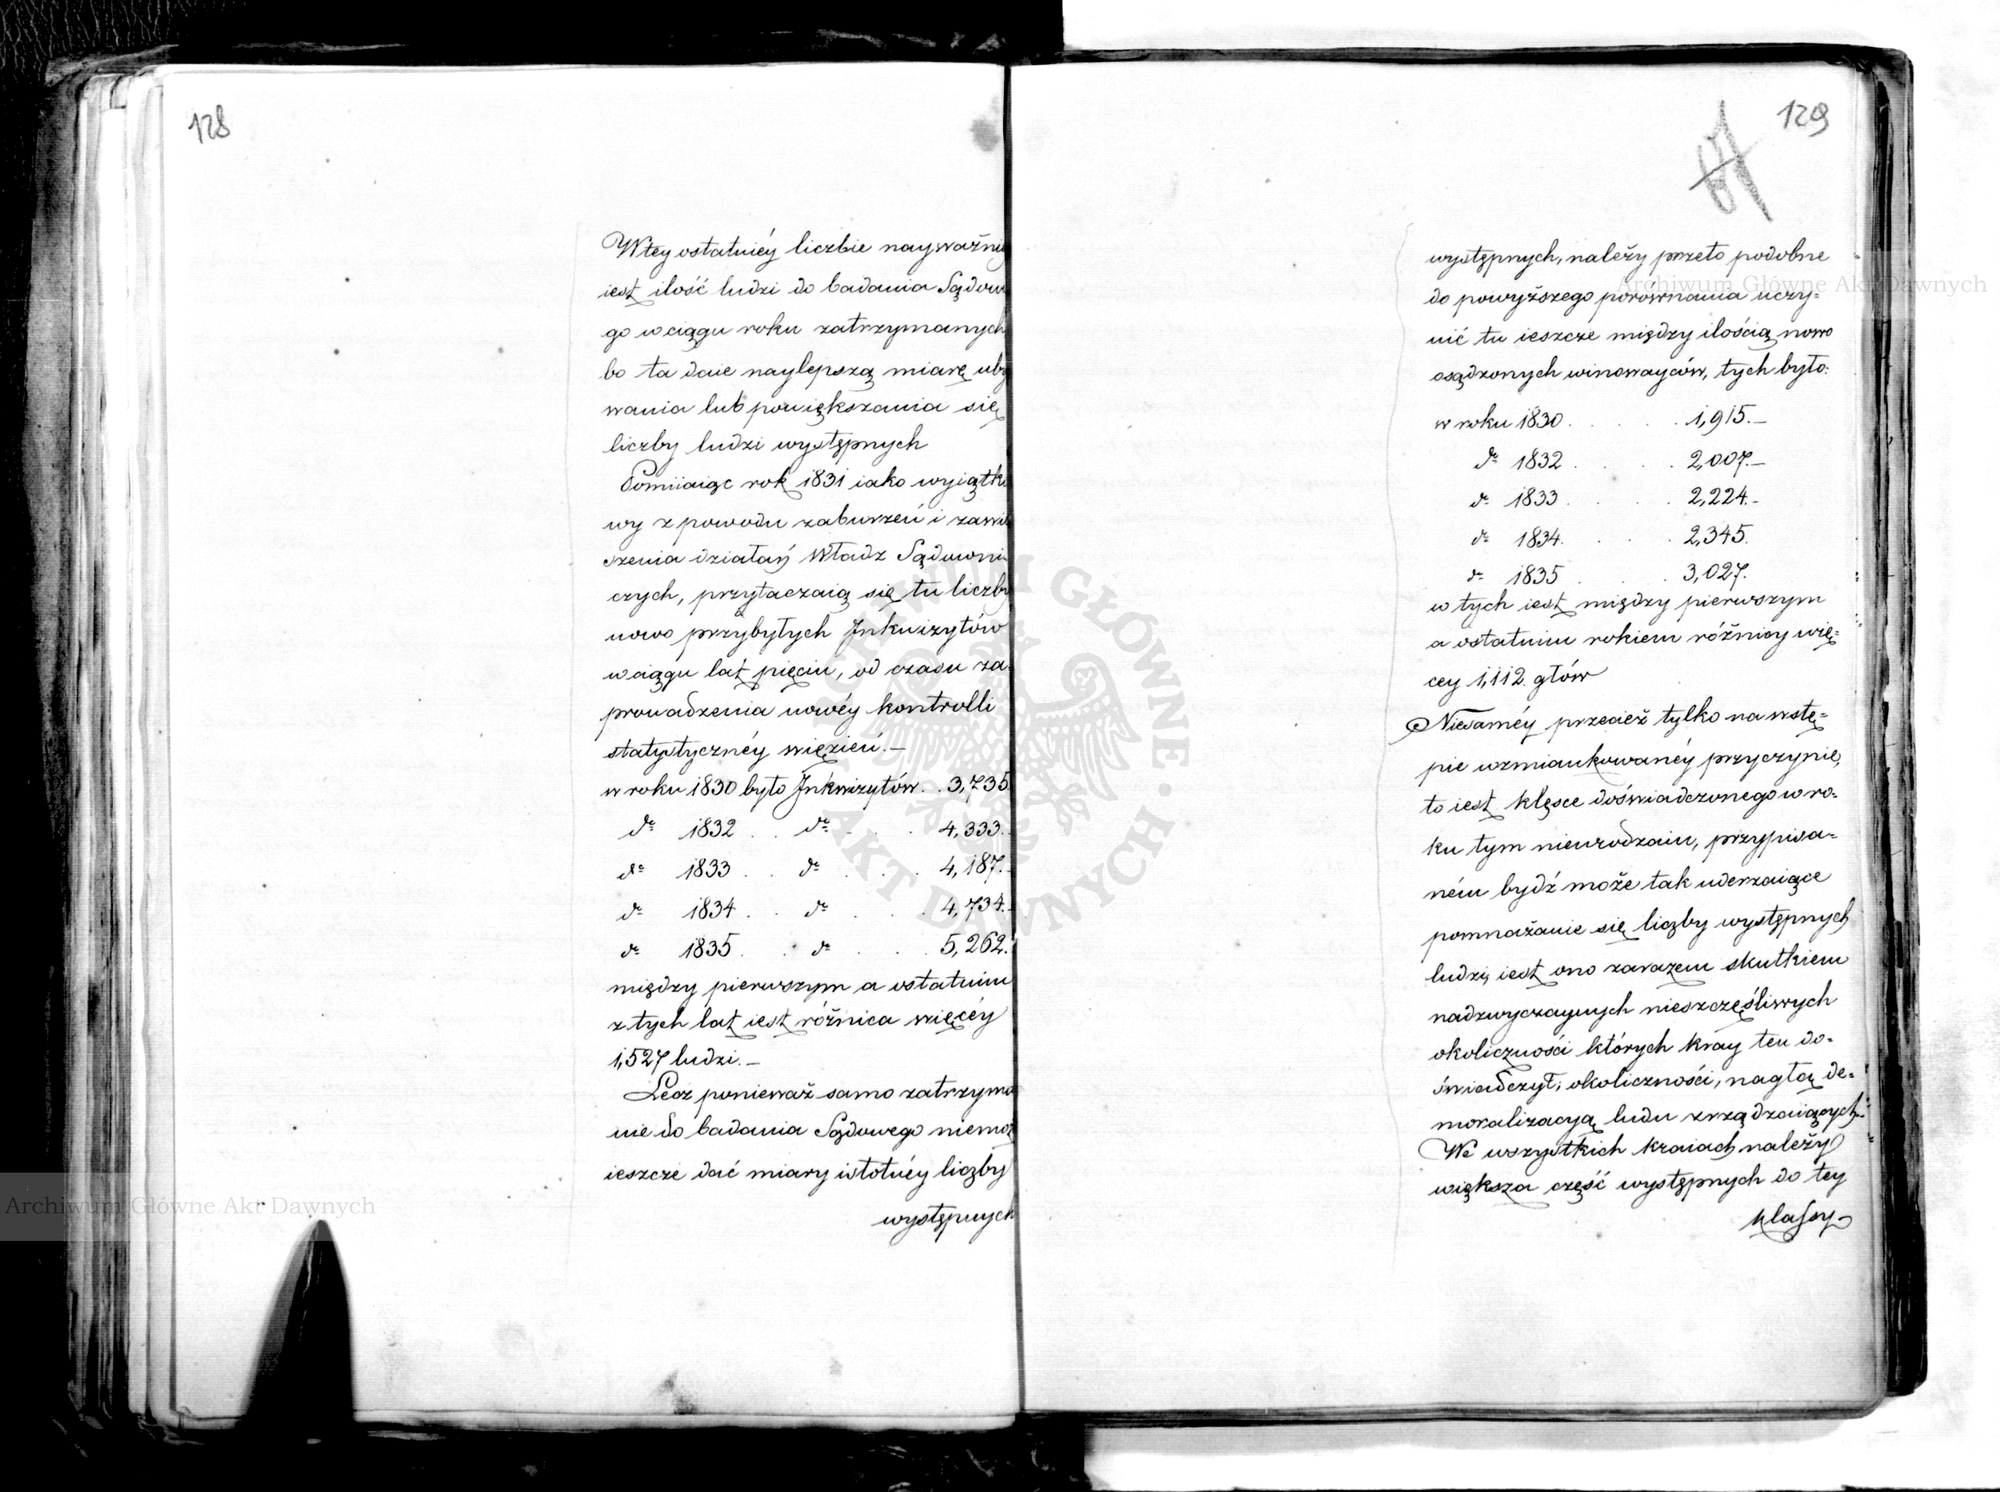 128
Wtey ostatniéy liczbie nayważniey
iest ilość ludzi do badania Sądowe
go w ciągu roku zatrzymanych
bo ta daie naylepszą miarę uby
wania lub powiększania się
liczby ludzi występnych
Pomiiaiąc rok 1831 iako wyiątko
wy z powodu zaburzeń i zawie
szenia działań Władz Sądowni
czych, przytaczaią się tu liczby
nowo przybyłych Inkwizytów
w ciągu lat pięciu, od czasu za
prowadzenia nowéy kontrolli
statystycznéy więzień.—
w roku 1830 było Inkwizytów . . 3,735.
do 1832 . . do . . . 4,333.
do 1833 . . do . . . 4,187.
do 1834 . . do . . . 4,734.
do 1835 . . do . . . 5,262.
między pierwszym a ostatnim
z tych lat iest różnica więcéy
1,527 ludzi.—
Lecz ponieważ samo zatrzyma
nie do badania Sądowego niemoż
ieszcze dać miary istotnéy liczby
występnych
129
występnych, należy przeto podobne
do powyższego porównania uczy=
nić tu ieszcze między ilością nowo
osądzonych winowayców, tych było:
w roku 1830 . . . . . 1,915.—
do 1832 . . . . 2,007.—
do 1833 . . . . 2,224.—
do 1834 . . . . 2,345.
do 1835 . . . . 3,027.
w tych iest między pierwszym
a ostatnim rokiem różnicy wię=
cey 1,112. głów
Niesaméy przecież tylko na wstę=
pie wzmiankowanéy przyczynie,
to iest klęsce doświadczonego w ro=
ku tym nieurodzaiu, przypisa=
ném bydź może tak uderzaiące
pomnażanie się liczby występnych
ludzi, iest ono zarazem skutkiem
nadzwyczaynych nieszczęśliwych
okoliczności których kray ten do=
świadczył; okoliczności, nagłą de=
moralizacyą ludu zrządzaiących.
We wszystkich kraiach należy
większa część występnych do tey
klassy
Archiwum Główne Akt Dawnych
Archiwum Główne Akt Dawnych
Archiwum Główne Akt Dawnych
ARCHIWUM GŁÓWNE AKT DAWNYCH